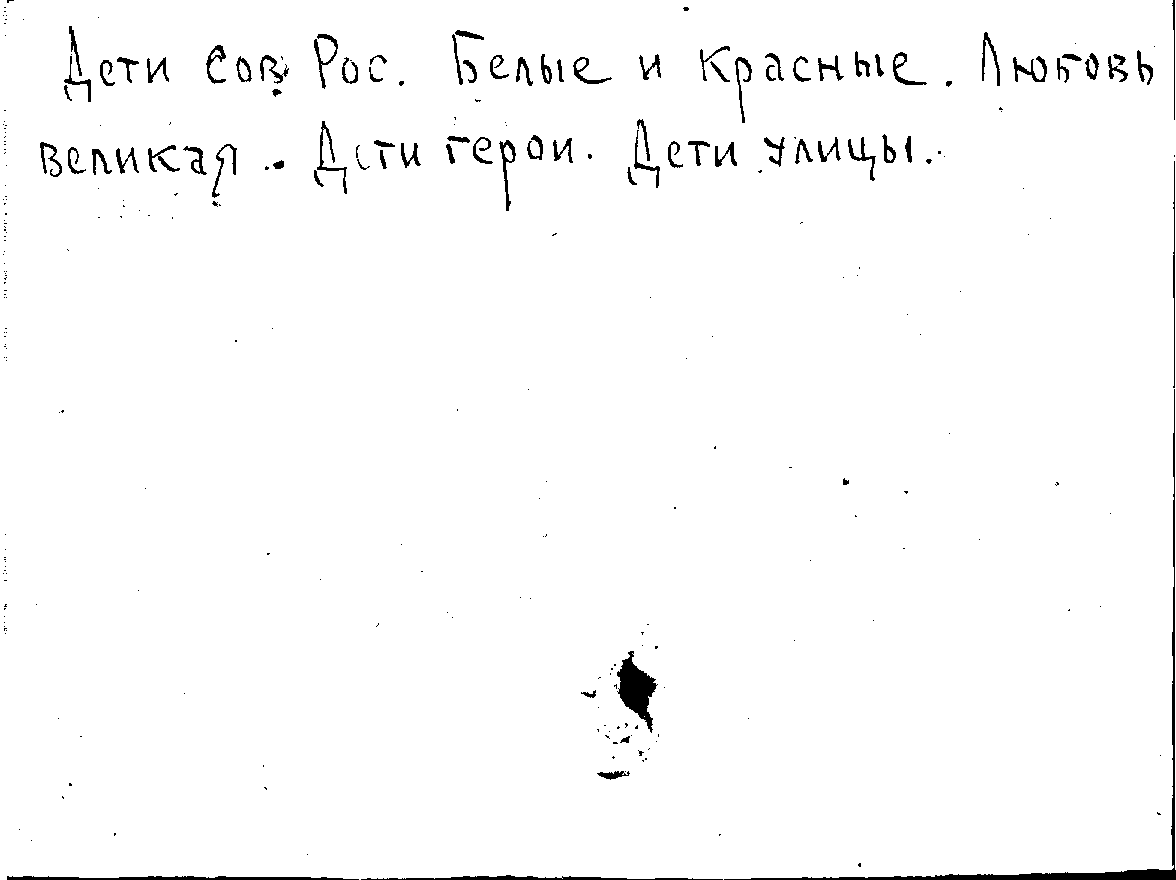 Дети Сов. Рос. Белые и красные. Любовь
великая.. Дети герои. Дети улицы.